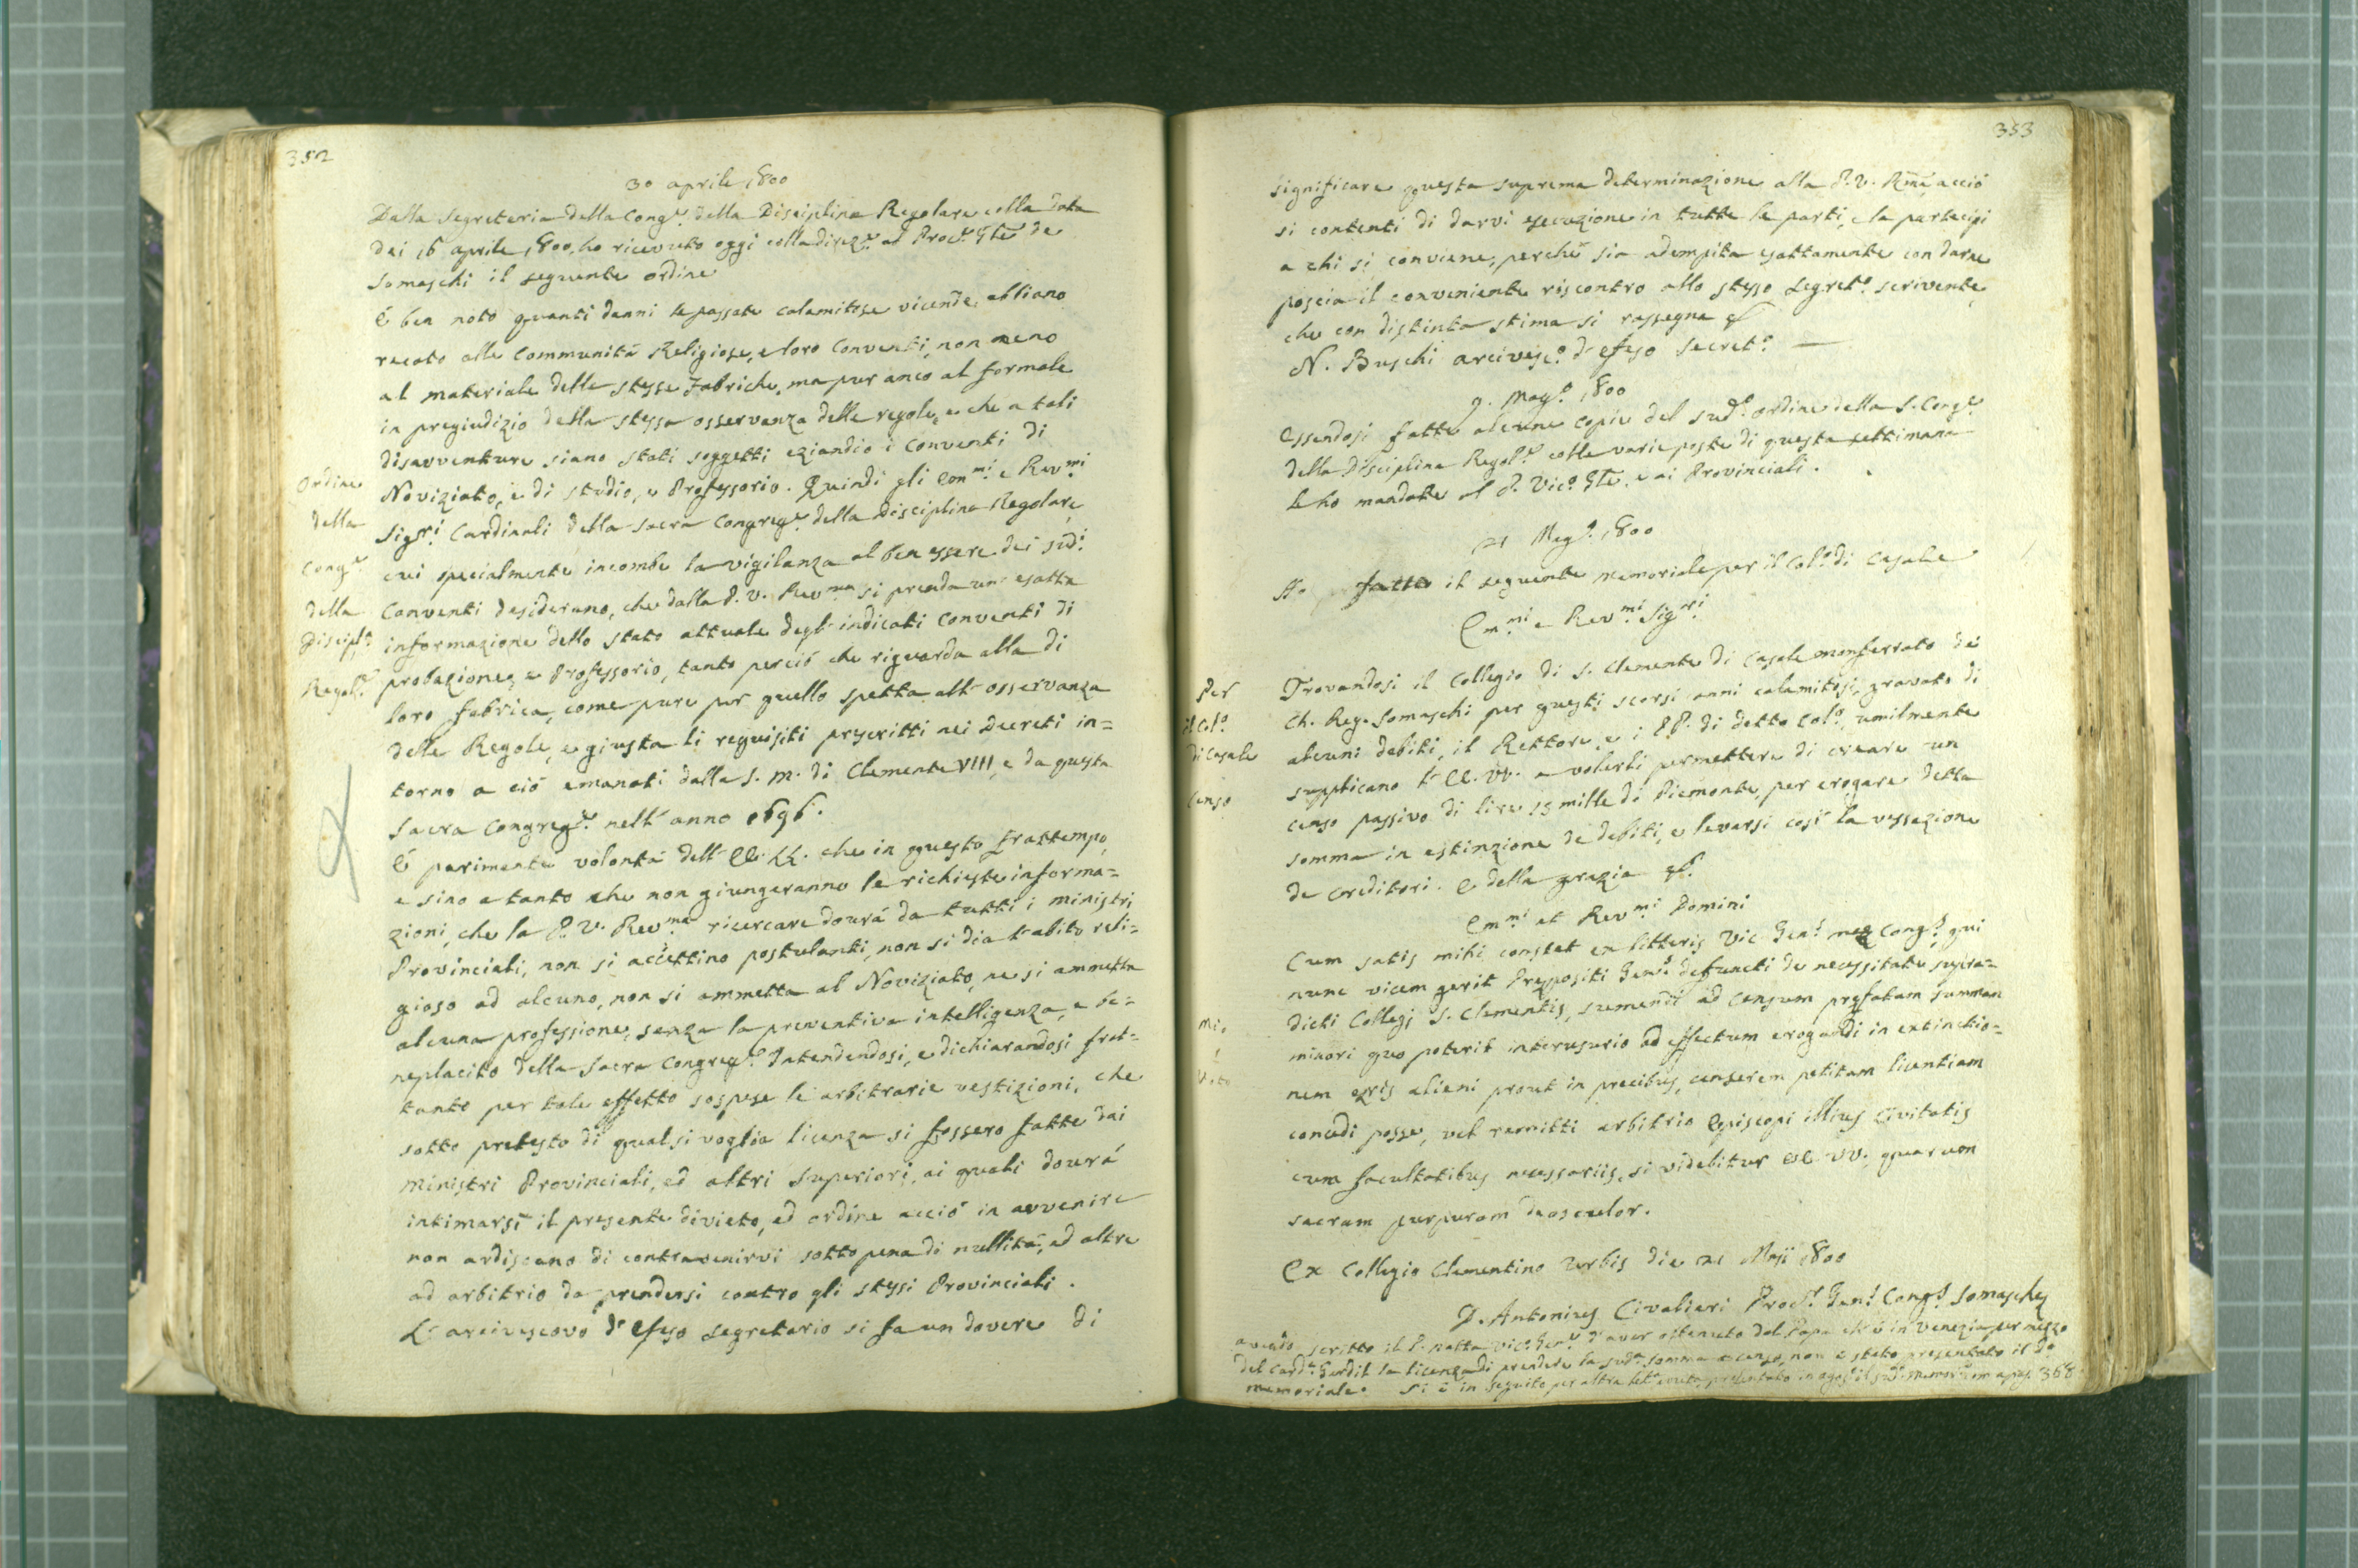 352
30 aprile 1800
Dalla Segreteria della Cong.e della Disciplina Regolare colla data
dei 16 aprile 1800, ho ricevuto oggi colla direz.e al Proc.e Gle de
Somaschi il seguente ordine
É ben noto quanti danni le passate calamitose vicende abbiano
recato alle Communitá Religiose, e loro Conventi, non meno
al materiale delle stesse Fabriche, ma pur anco al formale
in pregiudizio della stessa osservanza delle regole, e che a tali
disavventure siano stati soggetti eziandio i Conventi di
Noviziato, e di studio, e Professorio. Quindi gli Em.mi e Rev.mi
Sig.ri Cardinali della Sacra Congreg.e della Disciplina Regolare,
cui specialmente incombe la vigilanza al ben essere dei sud.i
Conventi desiderano, che dalla P. V. Rev.ma si prenda un' esatta
informazione dello stato attuale degl' indicati Conventi di
probazione, e Professorio, tanto perció che riguarda alla di
loro fabrica, come pure per quello spetta all' osservanza
delle Regole, e giusta li requisiti prescritti nei Decreti in=
torno a ció emanati dalla S. M. di Clemente VIII, e da questa
Sacra Congreg.e nell' anno 1696.
É parimente volontá dell' EE. LL. che in questo frattempo,
e sino a tanto che non giungeranno le richieste informa=
zioni, che la P. V. Rev.ma ricercare dovrá da tutti i ministri
Provinciali, non si accettino postulanti, non si dia l' abito reli=
gioso ad alcuno, non si ammetta al Noviziato, ne si ammetta
alcuna professione, senza la preventiva intelligenza, e be=
neplacito della Sacra Congreg.e Intendendosi, e dichiarandosi frat=
tanto per tale effetto sospese le arbitrarie vestizioni, che
sotto pretesto di qualsivoglia licenza si fossero fatte dai
ministri Provinciali, ed altri Superiori, ai quali dovrá
intimarsi il presente divieto, ed ordine acció in avvenire
non ardiscano di contravenirvi sotto pena di nullitá, ed altre
ad arbitrio da prendersi contro gli stessi Provinciali.
L' arcivescovo d' Efeso Segretario si fa un dovere di
Ordine
della
Cong.e
della
Discipl.a
Regol.e
353
significare questa suprema determinazione alla P. V. Rma, acció
si contenti di darvi esecuzione in tutte le parti, e la partecipi
a chi si conviene, perché sia adempita esattamente con darne
poscia il conveniente riscontro allo stesso Segret.o scrivente,
che con distinta stima si rassegna
N. Buschi arcivesc.o d' Efeso Secret.o
9. Mag.o 1800
Essendosi fatte alcune copie del sud.o ordine della S. Cong.e
della Disciplina Regol.e colle varie poste di questa settimana
le ho mandate al P. Vic.o Gle, e ai Provinciali.
21 Mag.o 1800
Ho fatto il seguente memoriale per il Col.o di Casale
Em.mi e Rev.mi Sig.ri
Trovandosi il Collegio di S. Clemente di Casale monferrato de
Ch. Reg. Somaschi per questi scorsi anni calamitosi gravato di
alcuni debiti, il Rettore, e i PP. di detto Col.o umilmente
supplicano l' EE. VV. a volerli permettere di creare un
censo passivo di lire 15 mille di Piemonte, per erogare detta
somma in estinzione de debiti, e levarsi cosí la vessazione
de creditori. E della grazia
Em.mi et Rev.mi Domini
Cum satis mihi constet ex litteris Vic. Gen.s Cong.s, qui
nunc vicem gerit Prępositi Gen.s defuncti de necessitate supra=
dicti Collegj S. Clementis, sumendi ad censum pręfatam summam
minori quo poterit interusurio ad effectum erogandi in extinctio=
nem ęris alieni prout in precibus, censerem petitam licentiam
concedi posse, vel remitti arbitrio Episcopi illius Civitatis
cum facultatibus necessariis, si videbitur EE VV., quarum
sacram purpuram deosculor.
Ex Collegio Clementino Urbis die 21 Maji 1800
D. Antonius Civalieri Proc.r Gen.s Cong.s Somaschę
avendo scritto il P. Natta Vic.o Gen.e d' aver ottenuto dal Papa ch' é in Venezia per mezzo
del Card.e Gerdil la licenza di prendere la sud.a somma a censo, non é stato presentato il do
memoriale. Si é in seguito per altra presentato in ag.o il sud.o 368
Per
il Col.o
di Casale
Censo
Mio
Voto